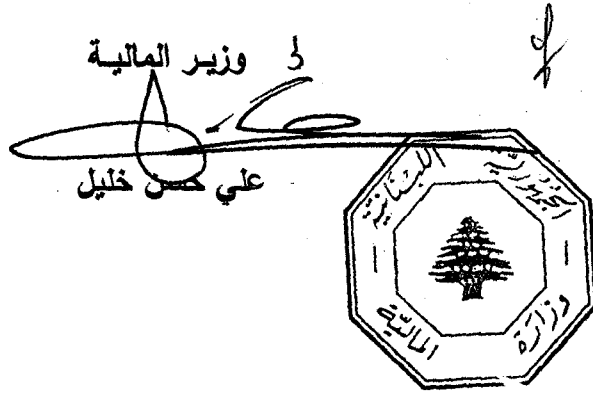 وزير المالية
علي حسن خليل
الجمهورية اللبنانية
وزارة المالية